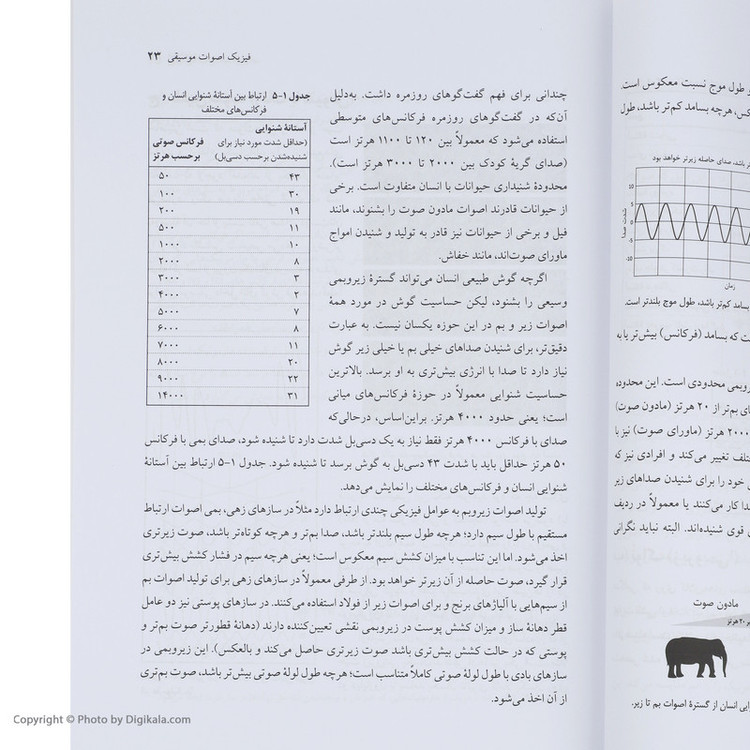 فیزیک اصوات موسیقی ۲۳
چندانی برای فهم گفت‌گوهای روزمره داشت. به‌دلیل
آن‌که در گفت‌گوهای روزمره فرکانس‌های متوسطی
استفاده می‌شود که معمولاً بین ۱۲۰ تا ۱۱۰۰ هرتز است
(صدای گریهٔ کودک بین ۲۰۰۰ تا ۳۰۰۰ هرتز است).
محدودهٔ شنیداری حیوانات با انسان متفاوت است. برخی
از حیوانات قادرند اصوات مادون صوت را بشنوند، مانند
فیل و برخی از حیوانات نیز قادر به تولید و شنیدن امواج
ماورای صوت‌اند، مانند خفاش.
اگرچه گوش طبیعی انسان می‌تواند گسترهٔ زیروبمی
وسیعی را بشنود، لیکن حساسیت گوش در مورد همهٔ
اصوات زیر و بم در این حوزه یکسان نیست. به عبارت
دقیق‌تر، برای شنیدن صداهای خیلی بم یا خیلی زیر گوش
نیاز دارد تا صدا با انرژی بیش‌تری به او برسد. بالاترین
حساسیت شنوایی معمولاً در حوزهٔ فرکانس‌های میانی
است؛ یعنی حدود ۴۰۰۰ هرتز. براین‌اساس، درحالی‌که
صدای با فرکانس ۴۰۰۰ هرتز فقط نیاز به یک دسی‌بل شدت دارد تا شنیده شود، صدای بمی با فرکانس
۵۰ هرتز حداقل باید با شدت ۴۳ دسی‌بل به گوش برسد تا شنیده شود. جدول ۱-۵ ارتباط بین آستانهٔ
شنوایی انسان و فرکانس‌های مختلف را نمایش می‌دهد.
تولید اصوات زیروبم به عوامل فیزیکی چندی ارتباط دارد مثلاً در سازهای زهی، بمی اصوات ارتباط
مستقیم با طول سیم دارد؛ هرچه طول سیم بلندتر باشد، صدا بم‌تر و هرچه کوتاه‌تر باشد، صوت زیرتری
اخذ می‌شود. اما این تناسب با میزان کشش سیم معکوس است؛ یعنی هرچه سیم در فشار کشش بیش‌تری
قرار گیرد، صوت حاصله از آن زیرتر خواهد بود. از طرفی معمولاً در سازهای زهی برای تولید اصوات بم
از سیم‌هایی با آلیاژهای برنج و برای اصوات زیر از فولاد استفاده می‌کنند. در سازهای پوستی نیز دو عامل
قطر دهانهٔ ساز و میزان کشش پوست در زیروبمی نقشی تعیین‌کننده دارند (دهانهٔ قطورتر صوت بم‌تر و
پوستی که در حالت کشش بیش‌تری باشد صوت زیرتری حاصل می‌کند و بالعکس). این زیروبمی در
سازهای بادی با طول لولهٔ صوتی کاملاً متناسب است؛ هرچه طول لولهٔ صوتی بیش‌تر باشد، صوت بم‌تری
از آن اخذ می‌شود.
جدول ۱-۵ ارتباط بین آستانهٔ شنوایی انسان و
فرکانس‌های مختلف
آستانهٔ شنوایی
فرکانس صوتی (حداقل شدت مورد نیاز برای
برحسب هرتز شنیده‌شدن برحسب دسی‌بل)
۵۰ ۴۳
۱۰۰ ۳۰
۲۰۰ ۱۹
۵۰۰ ۱۱
۱۰۰۰ ۱۰
۲۰۰۰ ۸
۳۰۰۰ ۳
۴۰۰۰ ۲
۵۰۰۰ ۷
۶۰۰۰ ۸
۷۰۰۰ ۱۱
۸۰۰۰ ۲۰
۹۰۰۰ ۲۲
۱۴۰۰۰ ۳۱
و طول موج نسبت معکوس است.
هرچه بسامد کم‌تر باشد، طول
باشد، صدای حاصله زیرتر خواهد بود
10
5
0
-5
-10
شدت صدا
زمان
بسامد کم‌تر باشد، طول موج بلندتر است.
که بسامد (فرکانس) بیش‌تر یا به
محدودی است. این محدوده
بم‌تر از ۲۰ هرتز (مادون صوت)
هرتز (ماورای صوت) نیز با
تغییر می‌کند و افرادی نیز که
خود را برای شنیدن صداهای زیر
کار می‌کنند یا معمولاً در ردیف
قوی شنیده‌اند. البته نباید نگرانی
مادون صوت
۲۰ هرتز
انسان از گسترهٔ اصوات بم تا زیر.
Copyright © Photo by Digikala.com